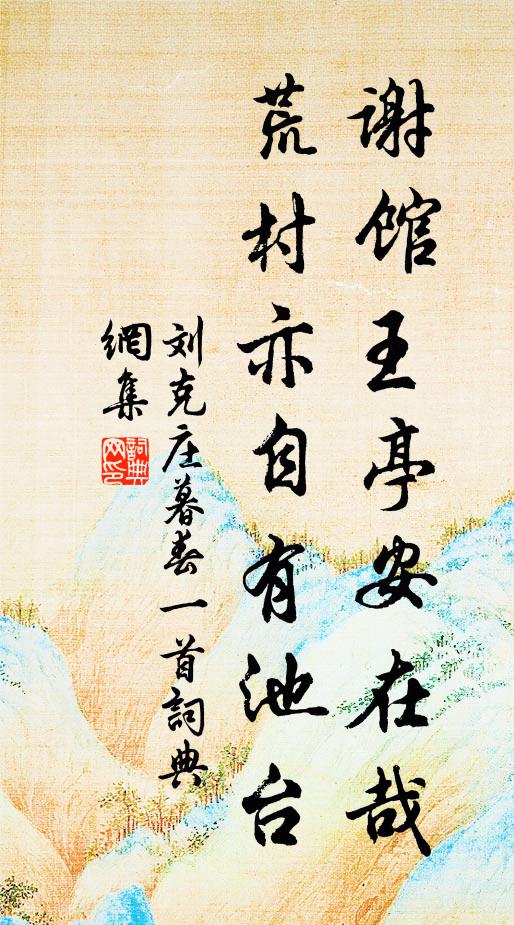 谢馆王亭安在哉
荒村亦自有池台
刘克庄暮春一首詞典
網集
詞典
网印